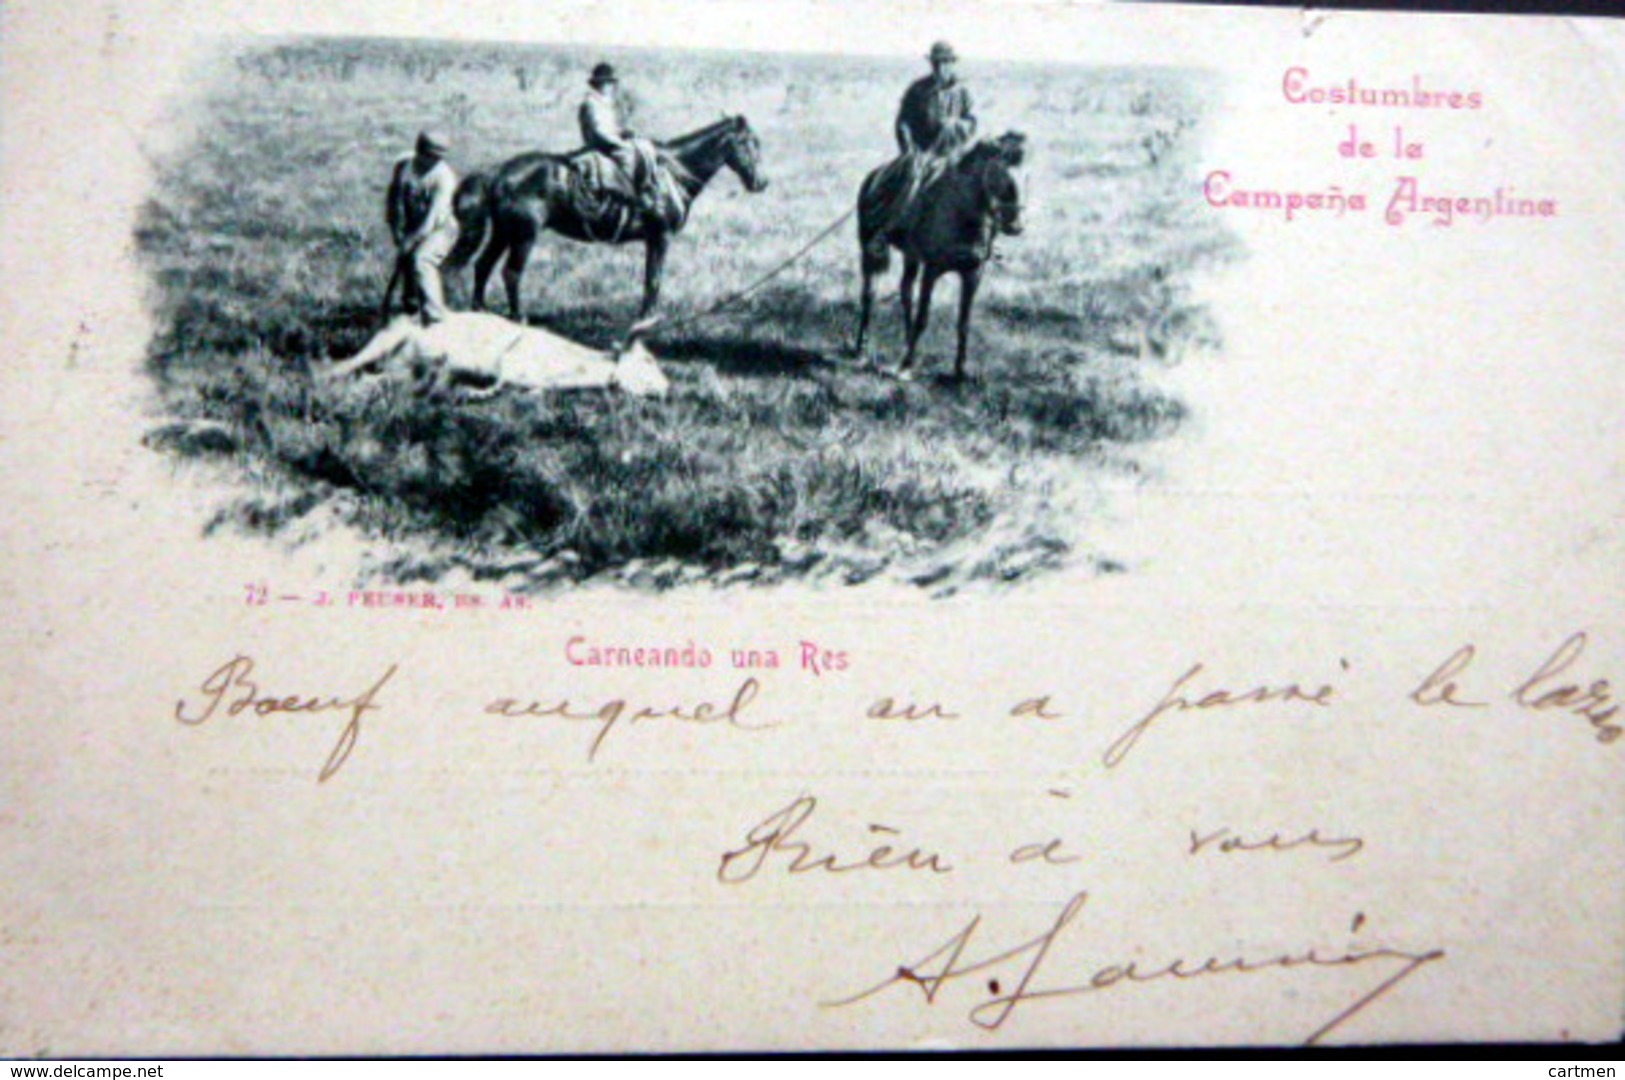 Costumbres
de la
Campaña Argentina
72 — J. PEUSER, BS. AS.
Carneando una Res
Bœuf auquel on a passé le lazzo
Bien à vous
A.
www.delcampe.net
cartmen